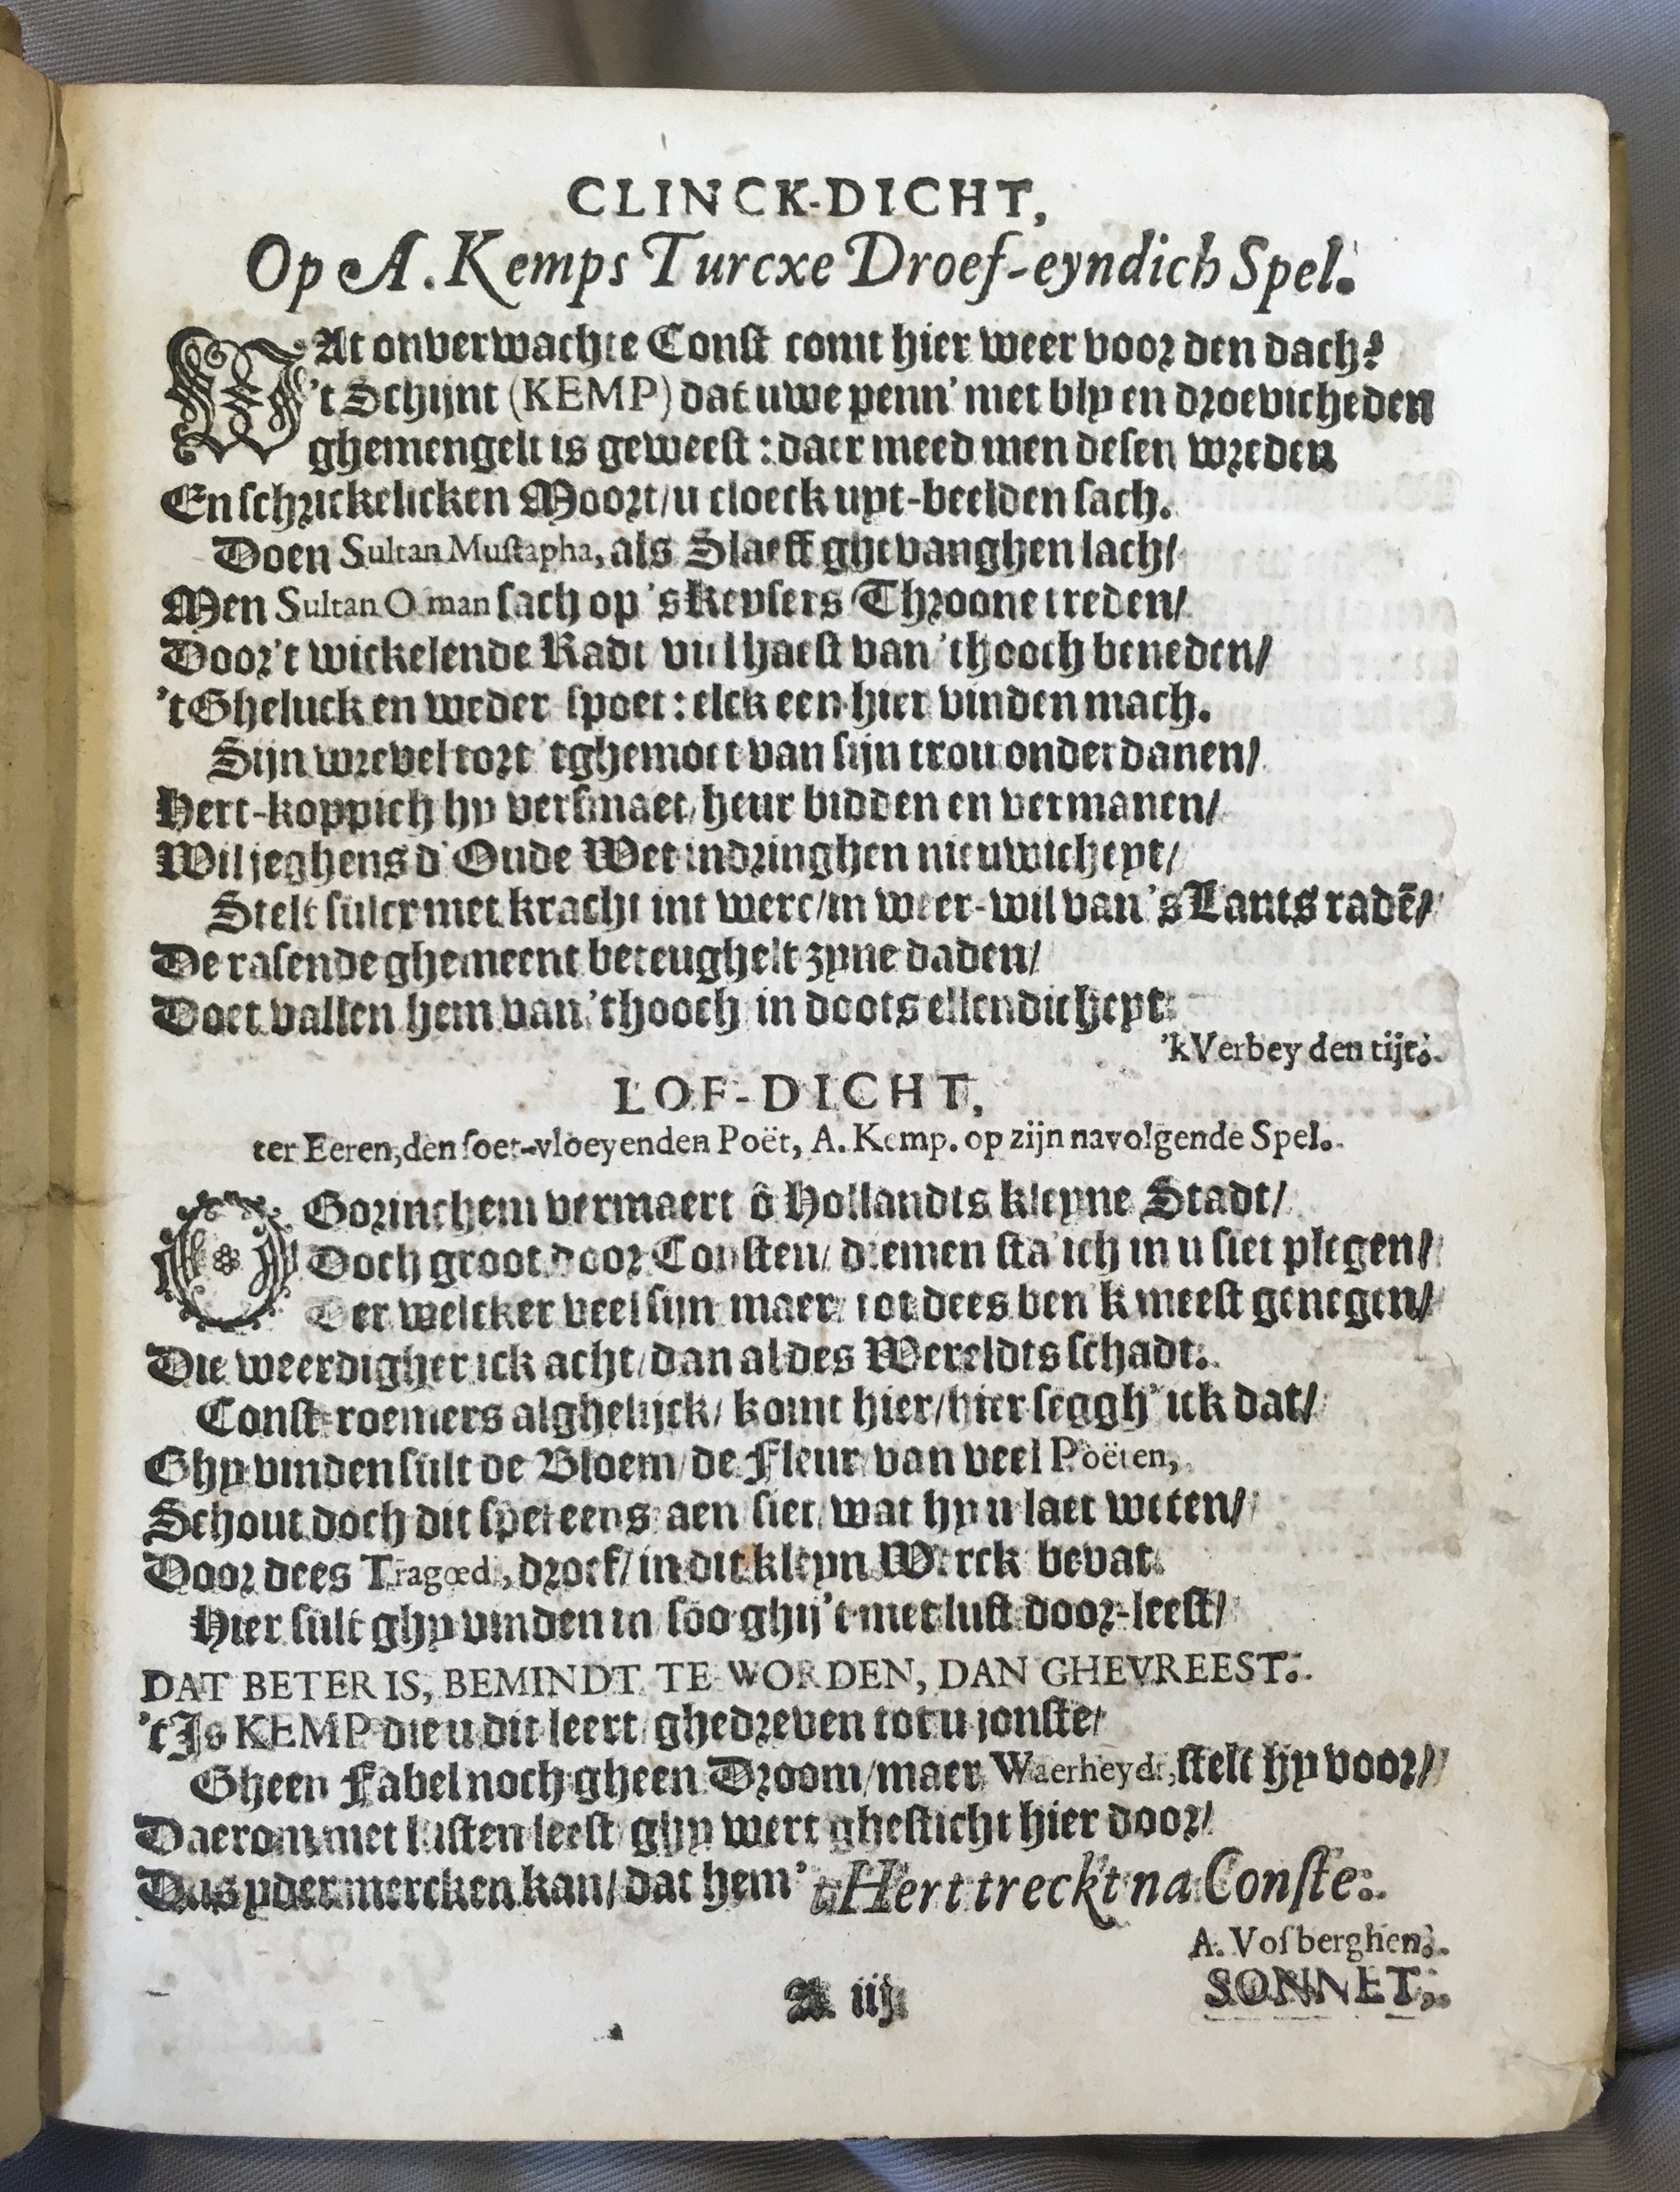 CLINCK-DICHT,
Op A. Kemps Turcxe Droef-eyndich Spel.
WAt onverwachte Const comt hier weer voor den dach?
't Schijnt (KEMP) dat uwe penn' met bly en droevicheden
ghemengelt is geweest: daer meed men desen wreden
En schrickelicken Moort/ u cloeck uyt-beelden sach.
Doen Sultan Mustapha, als Slaeff ghevanghen lach/
Men Sultan Osman sach op 's Keysers Throone treden/
Door 't wickelende Radt vol haest van 'thooch beneden/
't Gheluck en weder spoet: elck een hier vinden mach.
Sijn wrevel tort 'tghemoet van sijn trou onderdanen/
Hert-koppich hy versmaet/ heur bidden en vermanen/
Wil jeghens d'Oude Wet indringhen nieuwicheyt/
Stelt sulcx met kracht int werc/ in weer-wil van 's Lants radē/
De rasende ghemeent beteughelt zyne daden/
Doet vallen hem van 'thooch in doots ellendicheyt.
'k Verbey den tijt.
LOF-DICHT,
ter Eeren, den soet-vloeyenden Poët, A. Kemp. op zijn navolgende Spel.
O Gorinchem vermaert ô Hollandts kleyne Stadt/
Doch groot door Consten/ diemen sta'ich in u siet plegen/
Der welcker veel sijn maer/ tot dees ben 'k meest genegen/
Die weerdigher ick acht/ dan al des Wereldts schadt.
Const-roemers alghelijck/ komt hier/ hier seggh' ick dat/
Ghy vinden sult de Bloem/ de Fleur van veel Poëten,
Schout doch dit spel eens aen siet/ wat hy u laet weten/
Door dees Tragœdi, droef/ in dit kleyn Werck bevat.
Hier sult ghy vinden in soo ghij 't met lust door-leest/
DAT BETER IS, BEMINDT TE WORDEN, DAN GHEVREEST.
't Is KEMP die u dit leert/ ghedreven tot u jonste/
Gheen Fabel noch gheen Droom/ maer Waerheydt, stelt hy voor/
Daerom met lusten leest/ ghy wert ghesticht hier door/
Dus yder mercken kan/ dat hem 't Hert treckt na Conste.
A. Vosberghen.
A iij
SONNET,